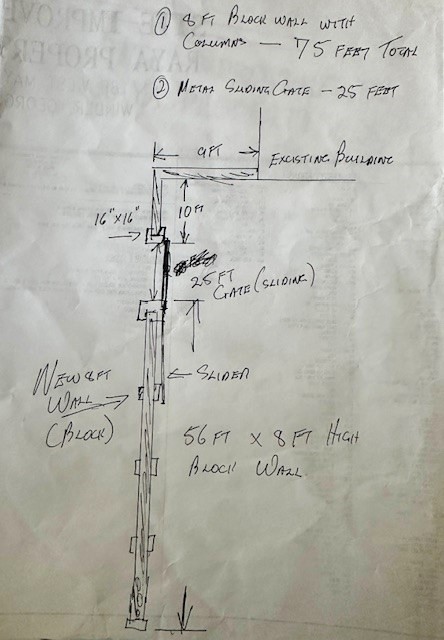 ① 8 FT BLOCK WALL WITH
COLUMNS — 75 FEET TOTAL
② METAL SLIDING GATE - 25 FEET
9FT
EXISTING BUILDING
16"x16"
10 FT
25 FT
GATE (SLIDING)
SLIDER
NEW 8FT
WALL
(BLOCK)
56 FT x 8 FT HIGH
BLOCK WALL